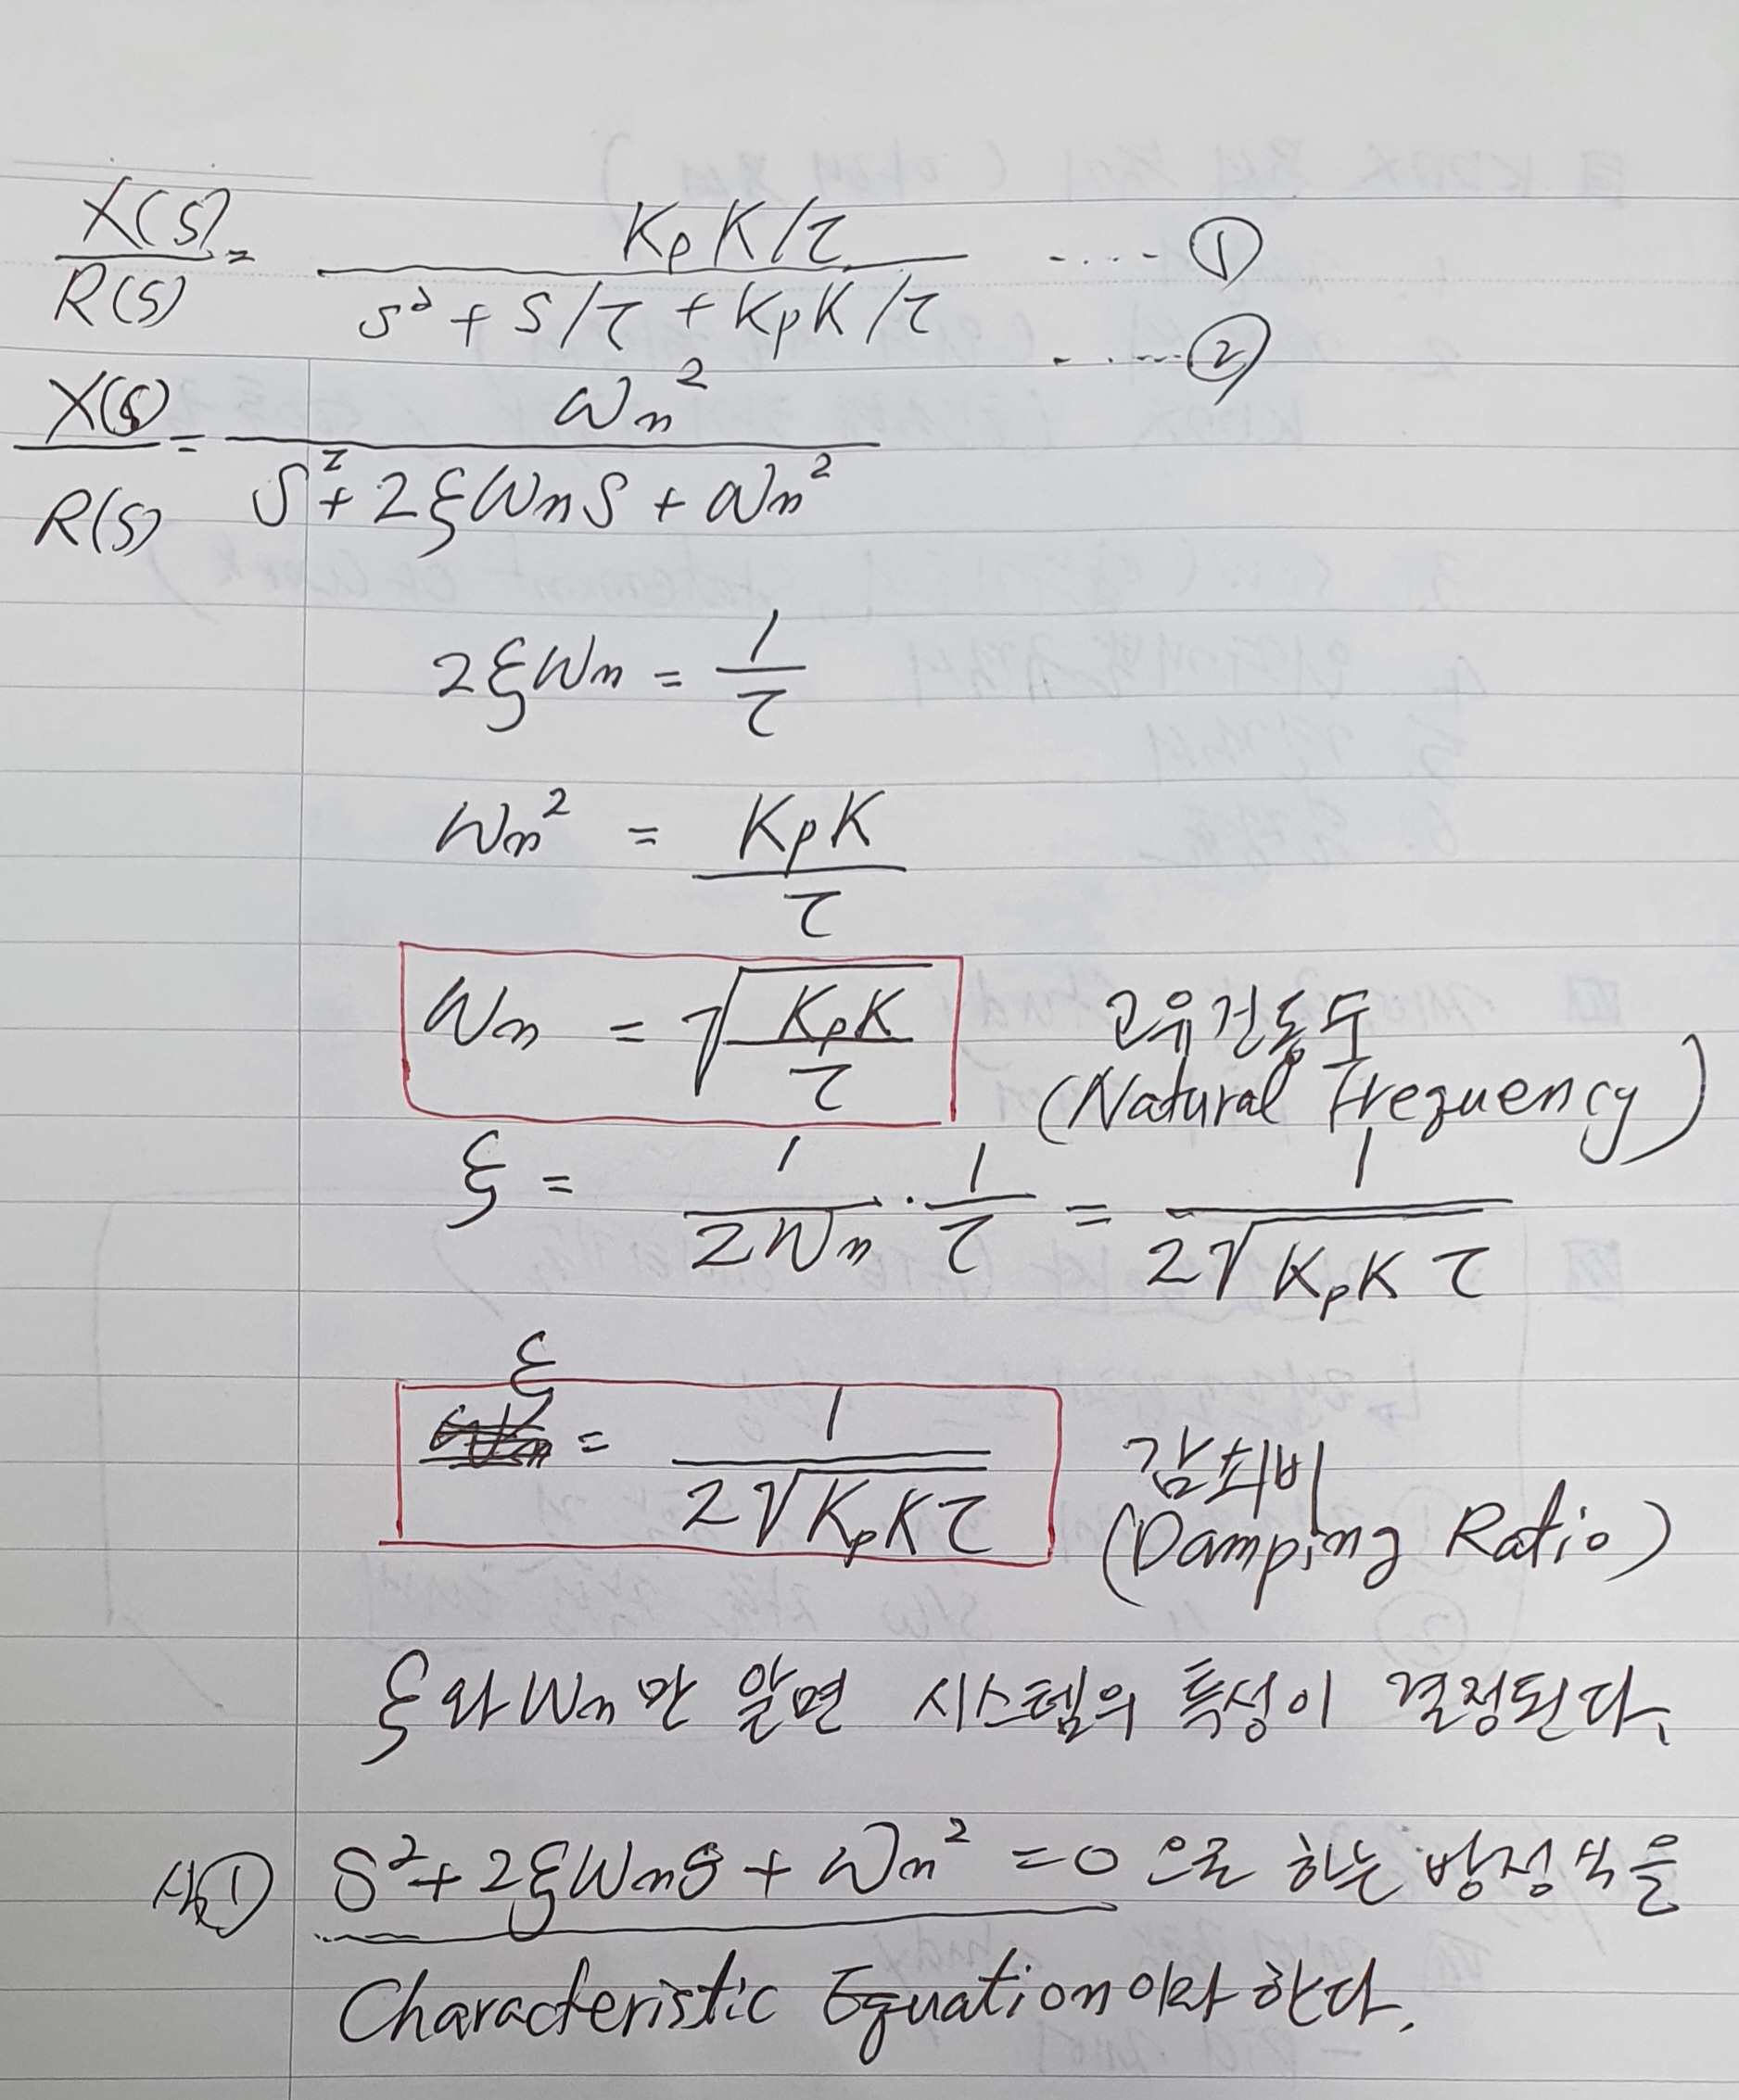 X(s)/R(s) = KpK/τ / (s² + s/τ + KpK/τ) ..... ①
X(s)/R(s) = ωn² / (s² + 2ξωns + ωn²) ..... ②
2ξωn = 1/τ
ωn² = KpK/τ
ωn = √(KpK/τ) 고유진동수
(Natural Frequency)
ξ = 1/2ωn · 1/τ = 1/(2√(KpKτ))
ξ = 1/(2√(KpKτ)) 감쇠비
(Damping Ratio)
ξ와 ωn만 알면 시스템의 특성이 결정된다.
식① s² + 2ξωns + ωn² = 0 으로 하는 방정식을
Characteristic Equation이라 한다.